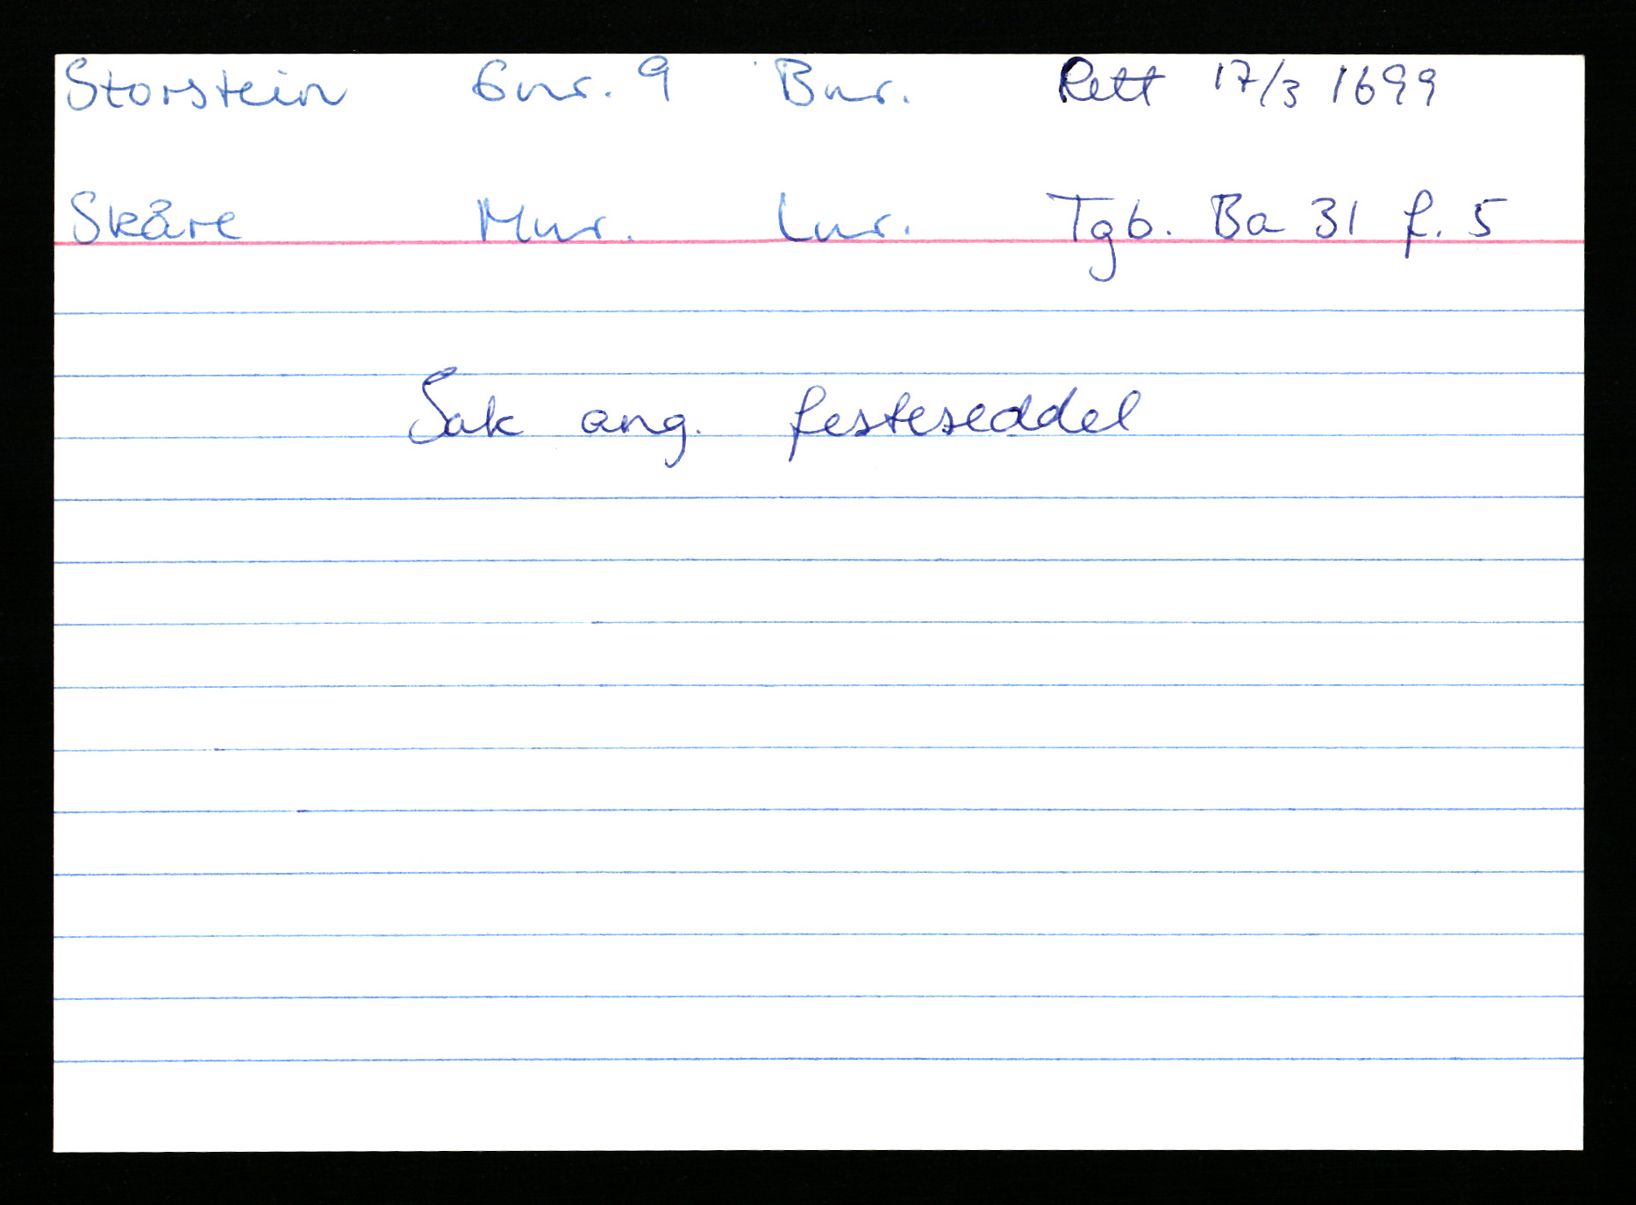 Storstein Gnr. 9 Bnr. Rett 17/3 1699
Skåre Mnr. Lnr. Tgb. Ba 31 f. 5
Sak ang. festeseddel